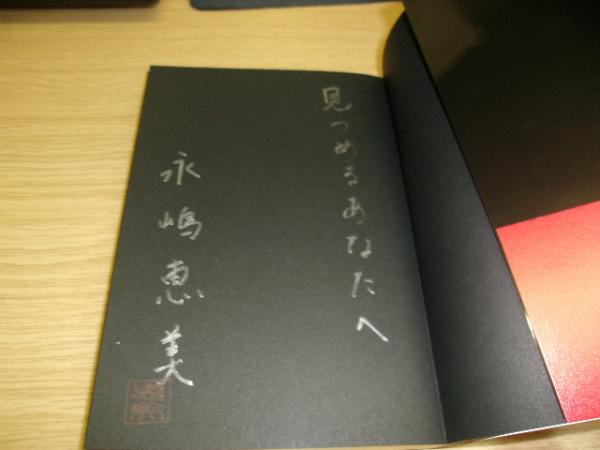 見つめるあなたへ
永嶋恵美